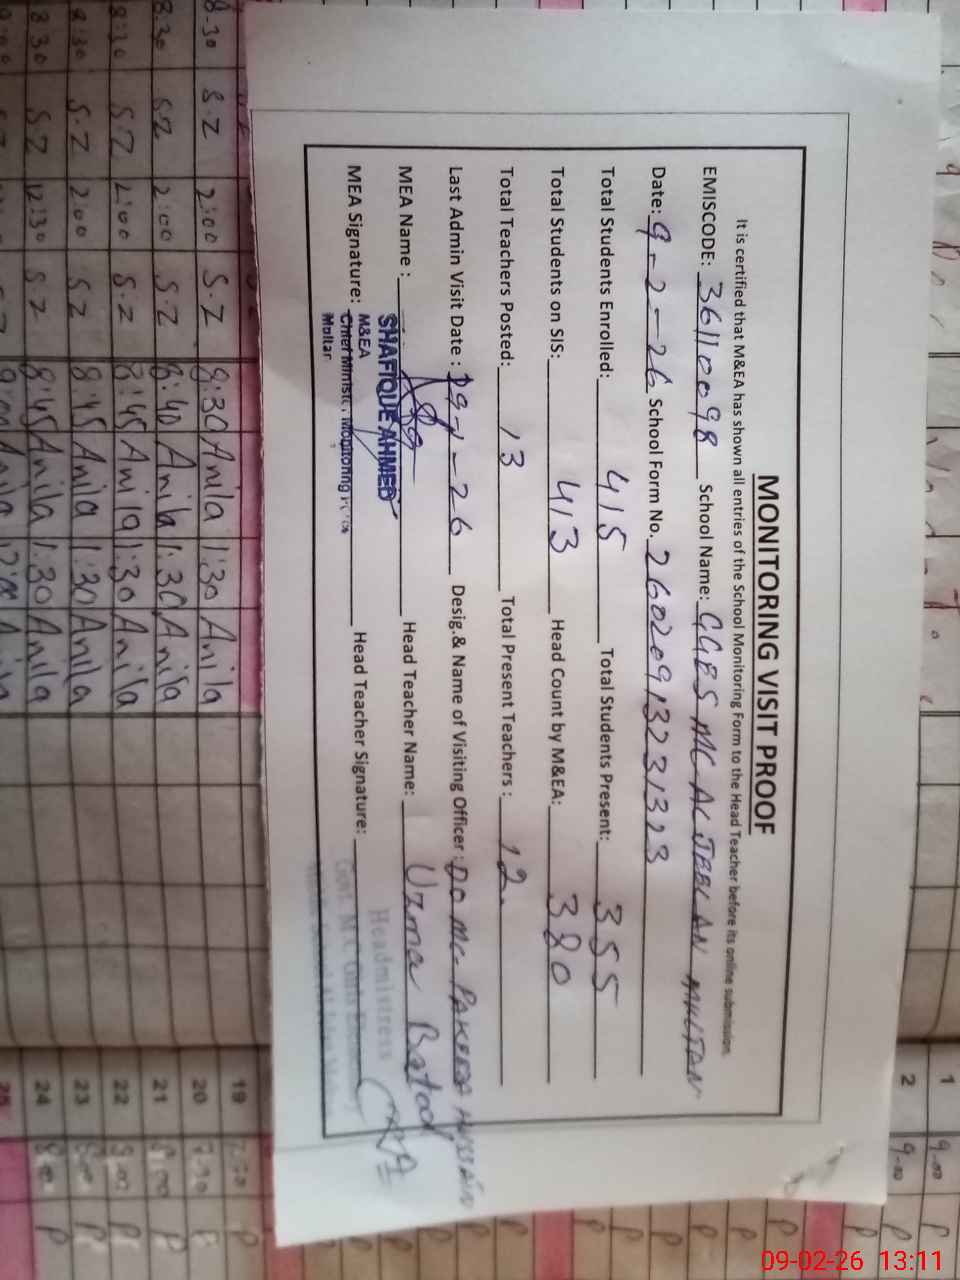 MONITORING VISIT PROOF
It is certified that M&EA has shown all entries of the School Monitoring Form to the Head Teacher before its online submission.
EMISCODE: 36110098 School Name: GGES MC AL JEELAN MULTAN
Date: 9-2-26 School Form No. 26020913231323
Total Students Enrolled: 415 Total Students Present: 355
Total Students on SIS: 413 Head Count by M&EA: 380
Total Teachers Posted: 13 Total Present Teachers: 12.
Last Admin Visit Date: 29-1-26 Desig.& Name of Visiting Officer: DO MC
MEA Name: Head Teacher Name: Uzma
SHAFIQUE AHMED
MEA Signature: Head Teacher Signature:
M&EA
Chief Minister Monitoring
Multan
Headmistress
Govt. M.C. Girls
8:30 S.Z 2:00 S.Z 8:30 Anila 1:30 Anila
8:30 S.Z 2:00 S.Z 8:40 Anila 1:30 Anila
8:30 S.Z 2:00 S.Z 8:45 Anila 1:30 Anila
8:30 S.Z 2:00 S.Z 8:45 Anila 1:30 Anila
8:30 S.Z 12:30 S.Z 8:45 Anila 1:30 Anila
1 9-00 P
2 9-00 P
19
20
21 8:00 P
22 8:00 P
23 8:00 P
24 8:00 P
25
09-02-26 13:11